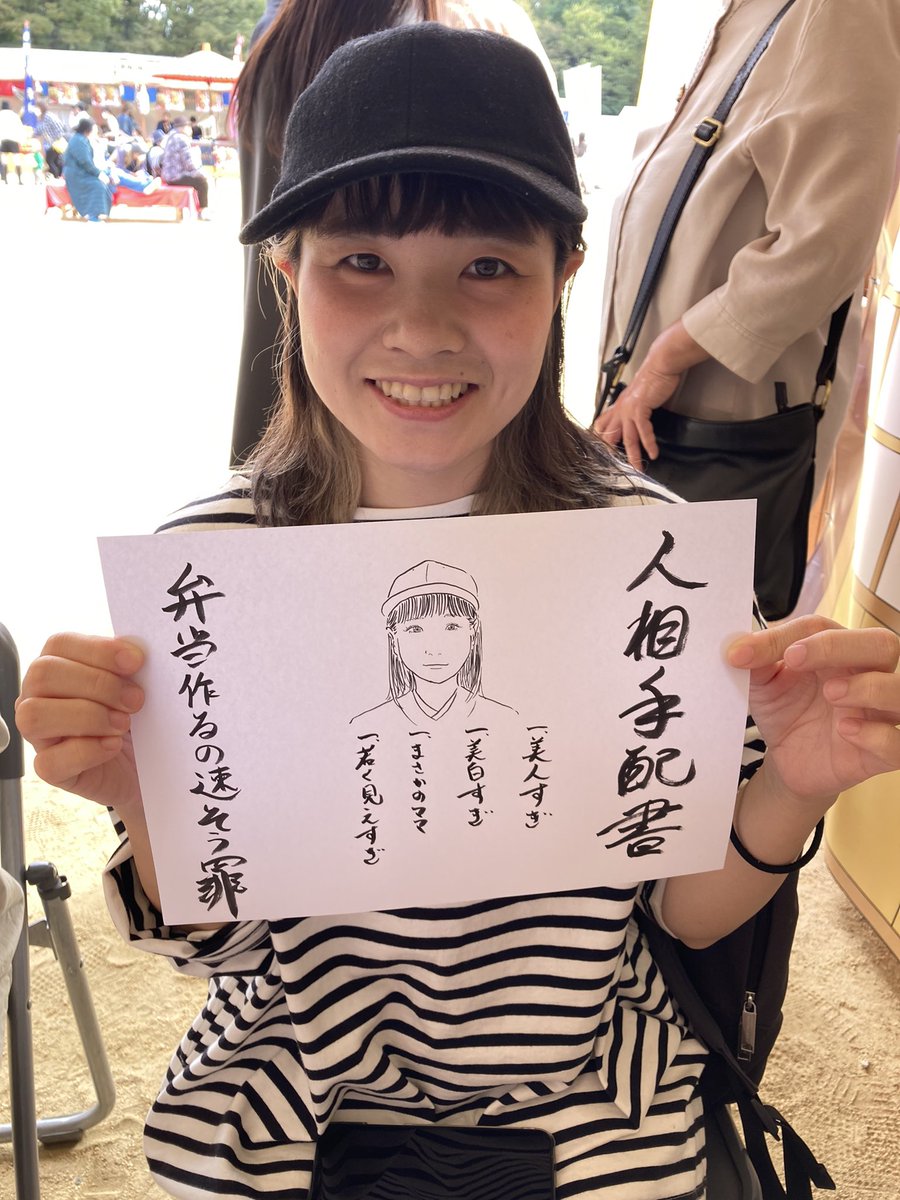 人相手配書
一、美人すぎ
一、美白すぎ
一、まさかのママ
一、若く見えすぎ
弁当作るの速そう罪